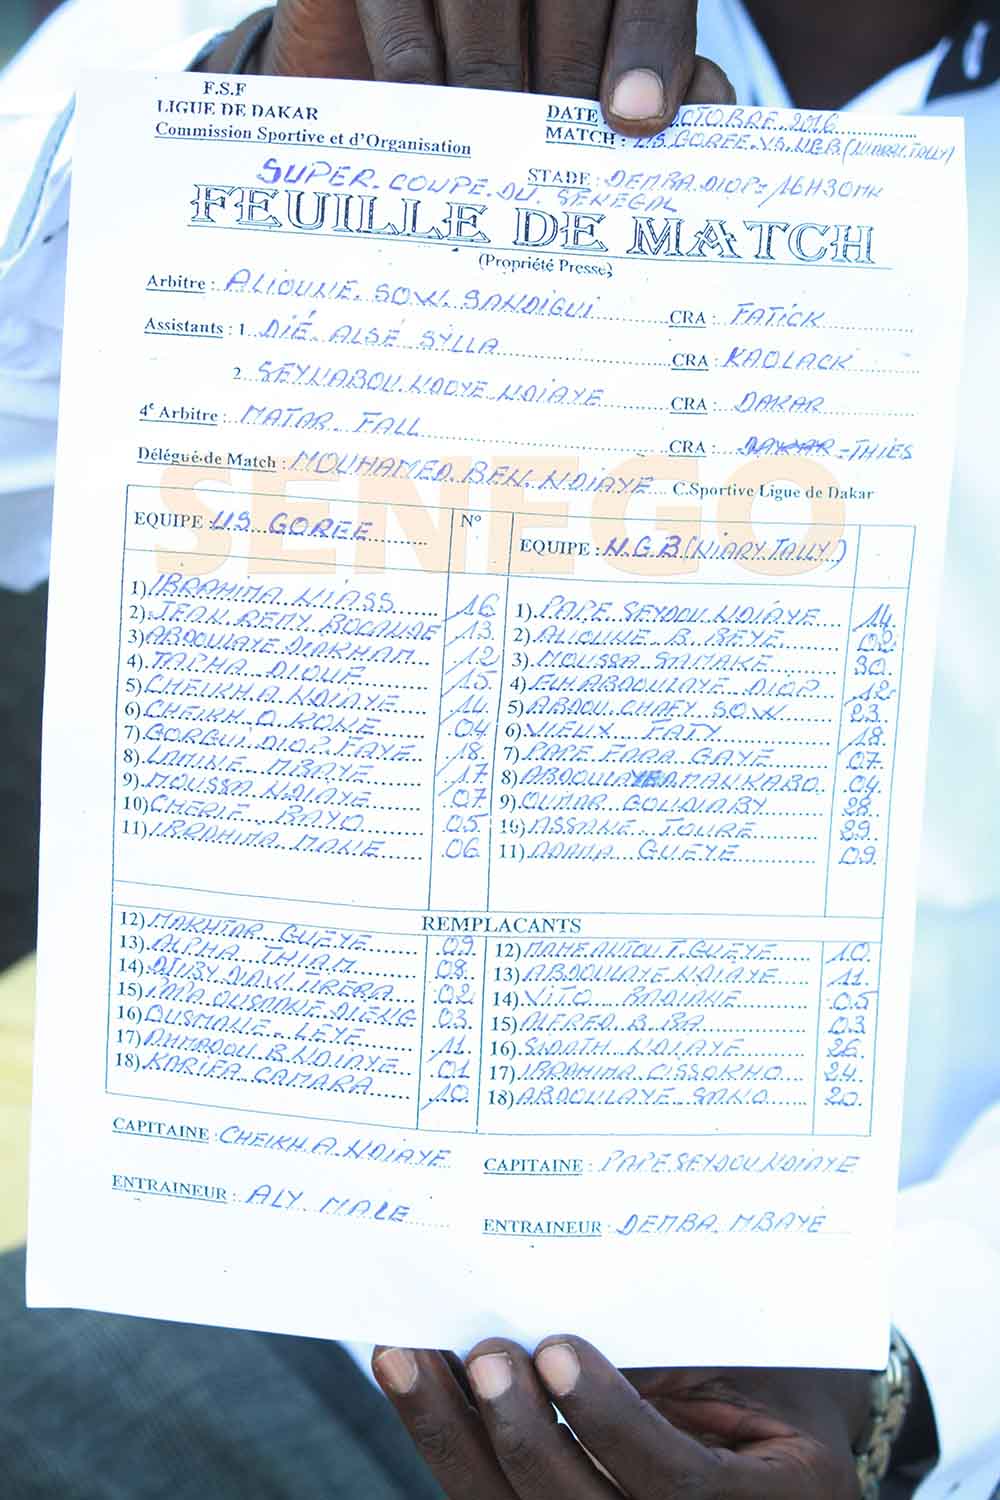 F.S.F
LIGUE DE DAKAR
Commission Sportive et d'Organisation
DATE OCTOBRE 2016
MATCH : US GOREE VS NGB (NIARRY TALLY)
STADE : DEMBA DIOP = 16H30MN
SUPER COUPE DU SENEGAL
FEUILLE DE MATCH
(Propriété Presse)
Arbitre : ALIOUNE SOW SANDIGUI CRA : FATICK
Assistants : 1 DIÉ ALSÉ SYLLA CRA : KAOLACK
2 SEYNABOU NDOYE NDIAYE CRA : DAKAR
4e Arbitre : MATAR FALL CRA : DAKAR - THIES
Délégué de Match : MOUHAMED BEN NDIAYE C.Sportive Ligue de Dakar
SENEGO
EQUIPE : US GOREE N°
1) IBRAHIMA NIASS 16
2) JEAN REMY BOCANDE 13
3) ABDOULAYE DIAKHAM 12
4) TAPHA DIOUF 15
5) CHEIKH A NDIAYE 14
6) CHEIKH O KONE 04
7) GORGUI DIOP FAYE 18
8) LAMINE MBAYE 17
9) MOUSSA NDIAYE 07
10) CHERIF BAYO 05
11) IBRAHIMA MANE 06
EQUIPE : N.G.B (NIARY TALLY)
1) PAPE SEYDOU NDIAYE 14
2) ALIOUNE B. BEYE 02
3) MOUSSA SAMAKE 30
4) ELH ABDOULAYE DIOP 12
5) ABDOU CHAFY SOW 23
6) VIEUX FATY 18
7) PAPE FARA GAYE 07
8) ABDOULAYE MANKABO 04
9) OUMAR GOUDIABY 28
10) ASSANE TOURE 29
11) ADAMA GUEYE 09
REMPLACANTS
12) MAKHTAR GUEYE 09
13) ALPHA THIAM 08
14) 02
15) OUSMANE DIENG 03
16) OUSMANE LEYE 11
17) AHMADOU B NDIAYE 01
18) KARIFA CAMARA 10
12) MAME T. GUEYE 10
13) ABDOULAYE NDIAYE 11
14) VITO BADIANE 05
15) ALFRED B. BA 03
16) SIDATH NDIAYE 26
17) IBRAHIMA CISSOKHO 24
18) ABDOULAYE SANO 20
CAPITAINE : CHEIKH A. NDIAYE
ENTRAINEUR : ALY MALE
CAPITAINE : PAPE SEYDOU NDIAYE
ENTRAINEUR : DEMBA MBAYE